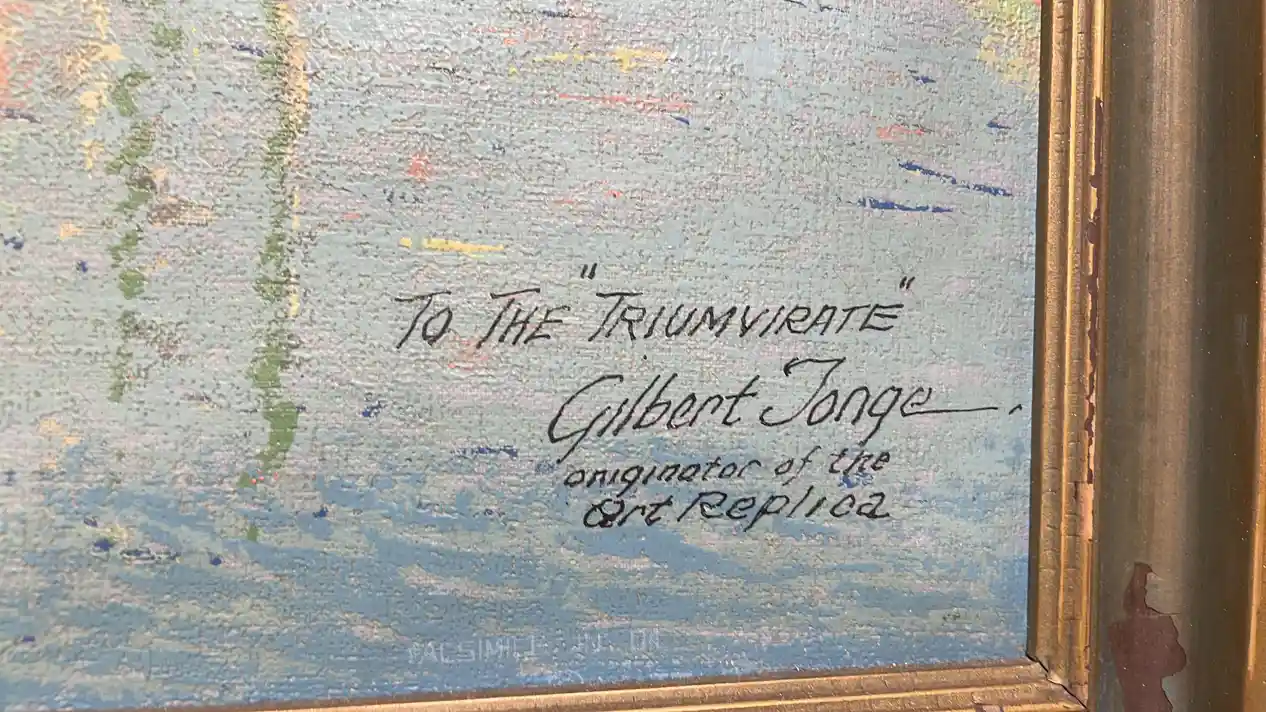 TO THE "TRIUMVIRATE"
Gilbert Tonge
originator of the
Art Replica
FACSIMILE IN OIL